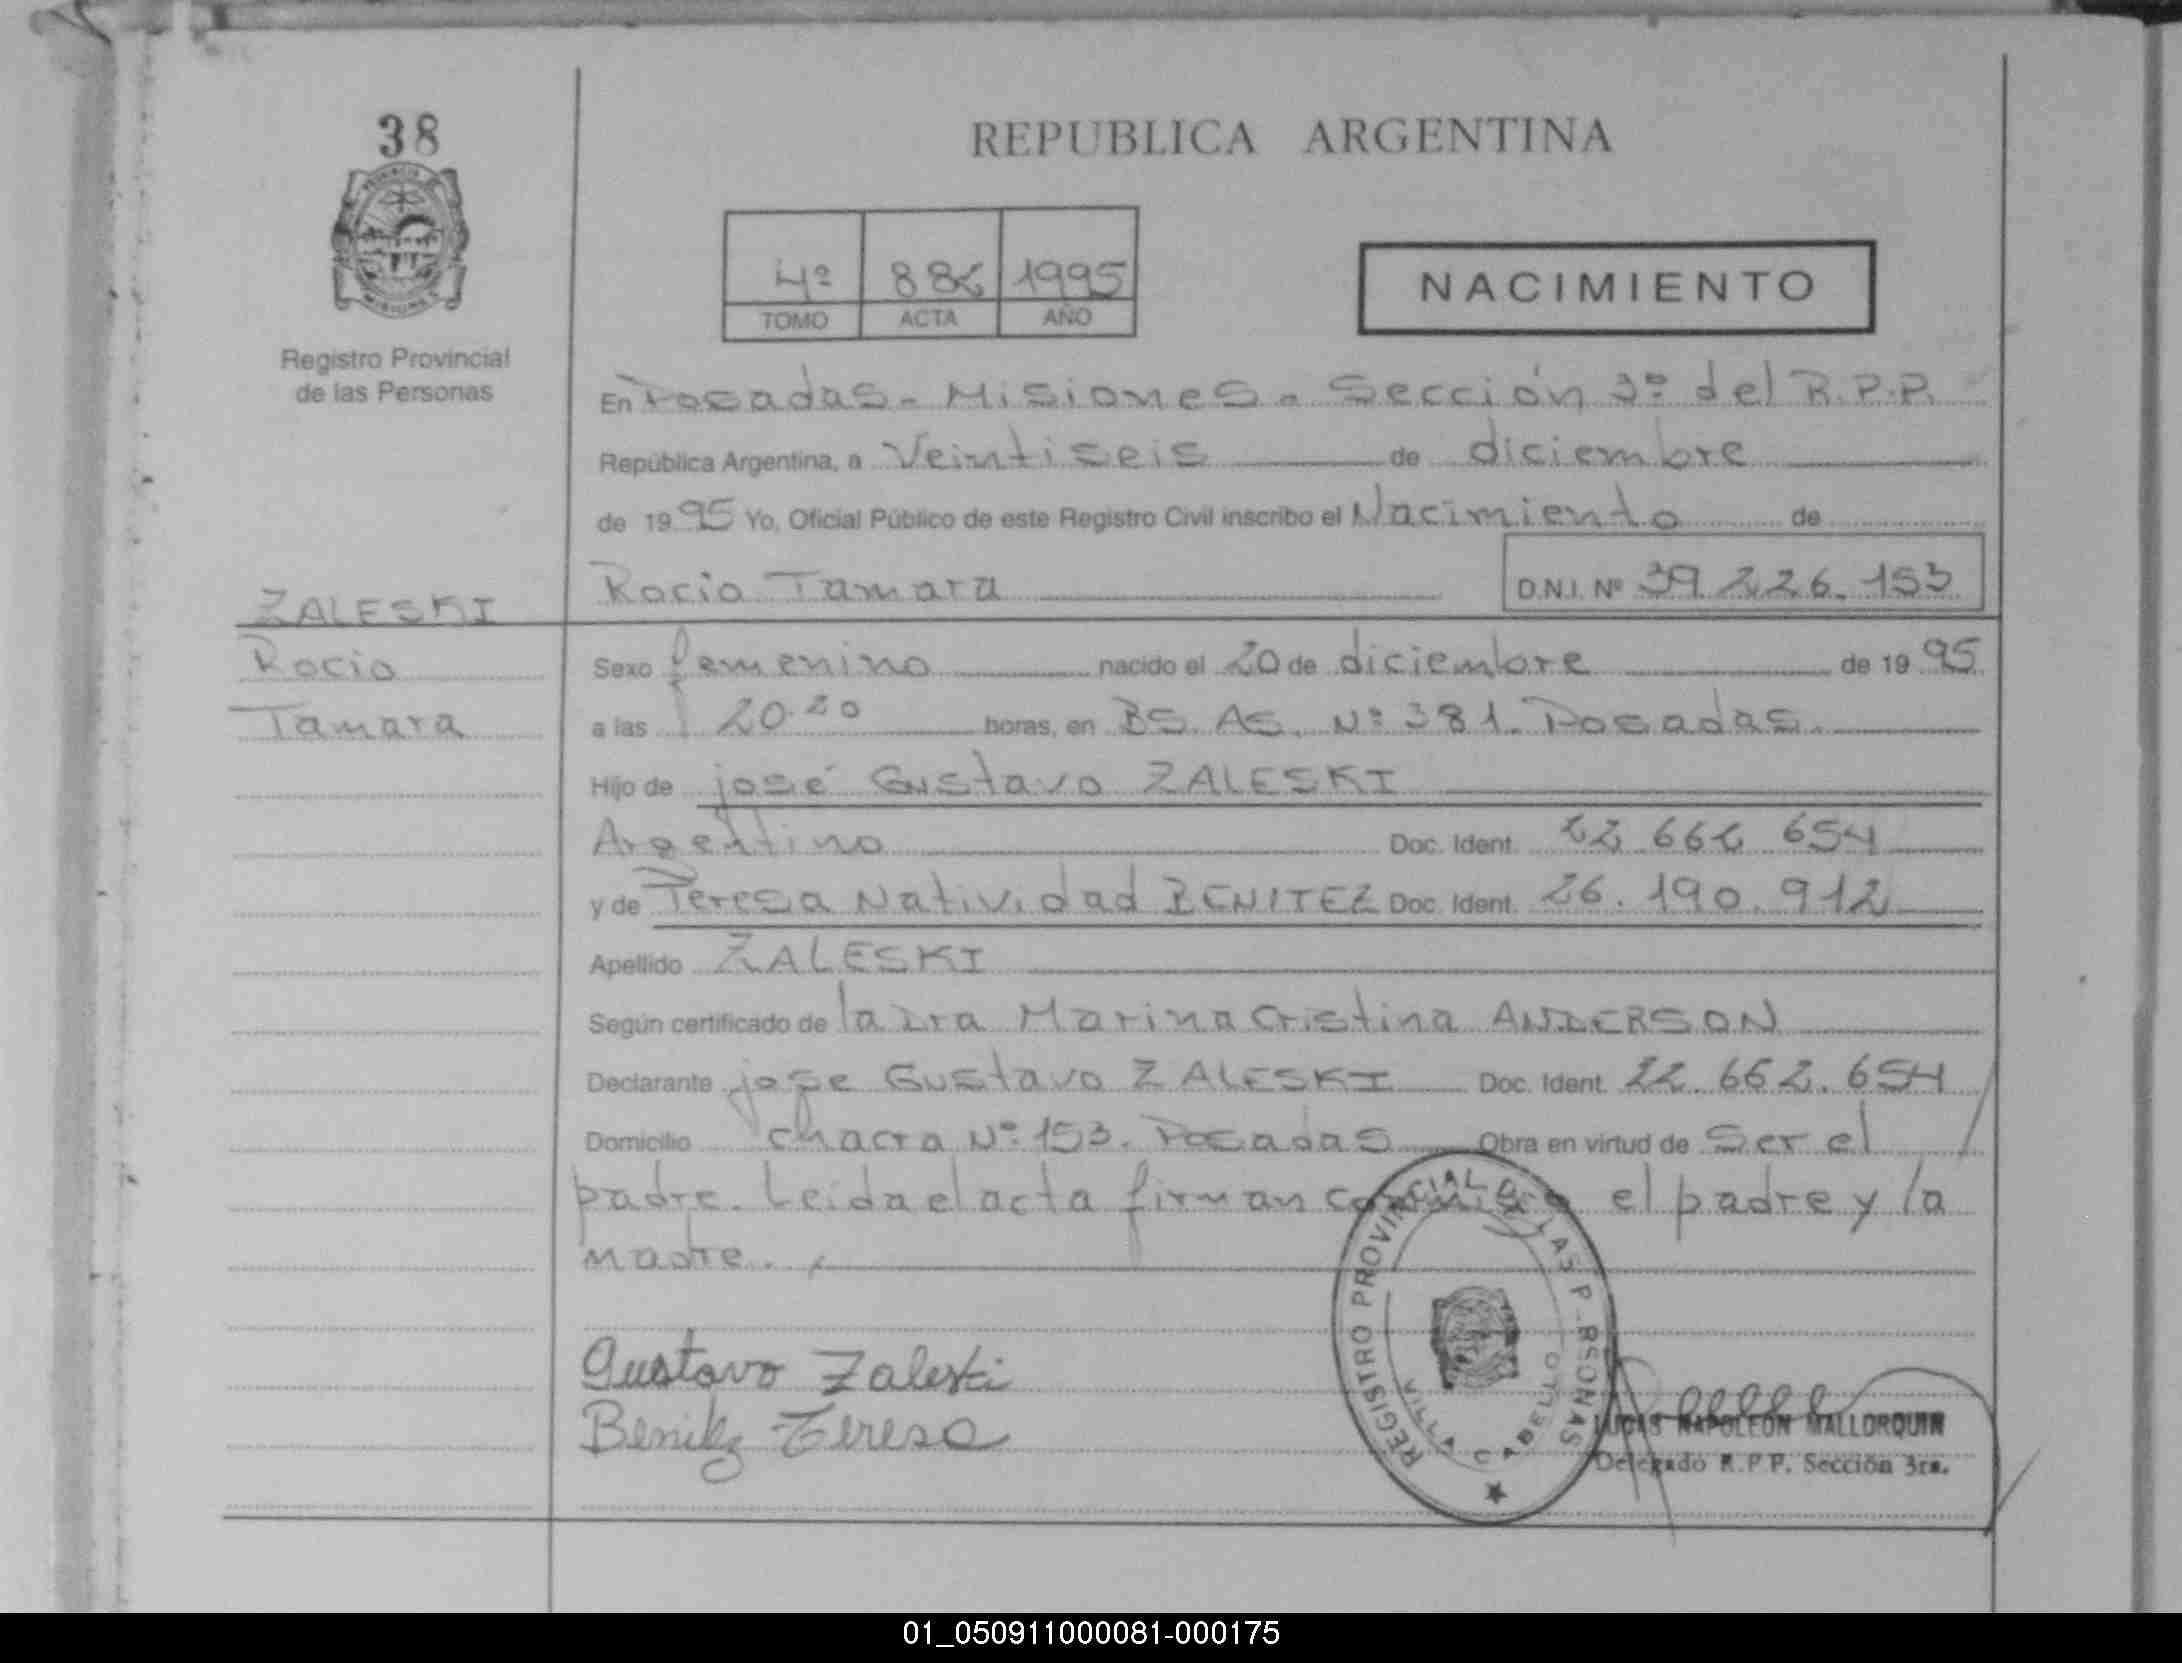 38
REPUBLICA ARGENTINA
4º 886 1995
TOMO ACTA AÑO
NACIMIENTO
Registro Provincial
de las Personas
En Posadas - Misiones - Sección 3º del R.P.P.
República Argentina, a Veintiseis de diciembre
de 1995 Yo, Oficial Público de este Registro Civil inscribo el Nacimiento de
Rocio Tamara D.N.I. Nº 39.226.153
ZALESKI
Rocio
Tamara
Sexo femenino nacido el 20 de diciembre de 1995
a las 20.20 horas, en BS. AS. Nº 381. Posadas.
Hijo de josé Gustavo ZALESKI
Argentino Doc. Ident. 22 662 654
y de Teresa Natividad BENITEZ Doc. Ident. 26.190.912
Apellido ZALESKI
Según certificado de la Dra Marina Cristina ANDERSON
Declarante jose Gustavo ZALESKI Doc. Ident. 22.662.654
Domicilio chacra Nº 153. Posadas Obra en virtud de Ser el
padre. Leida el acta firman conmigo el padre y la
madre.
Gustavo Zaleski
Benitez Teresa
REGISTRO PROVINCIAL DE LAS PERSONAS
VILLA CABELLO
LUCAS NAPOLEON MALLORQUIN
Delegado R.P.P. Sección 3ra.
01_050911000081-000175